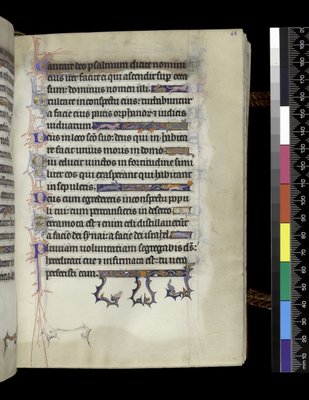 antate deo psalmum dicite nomini
eius iter facite ei qui ascendit sup occa
sum: dominus nomen illi.
xultate in conspectu eius: turbabuntur
a facie eius patris orphanor: iudicis
uiduarum
eus in loco sco suo: deus qui in habita
re facit unius moris in domo.
ui educit uinctos in fortitudine simi
liter eos qui exasperant qui habitant
in sepulcris.
eus cum egredereris in conspectu popu
li tui: cum pertransieris in deserto.
erra mota est enim celi distillauerunt
a facie dei synai: a facie dei israel.
luuiam uoluntariam segregabis ds:
hereditati tue infirmata est: tu uero
perfecisti eam.